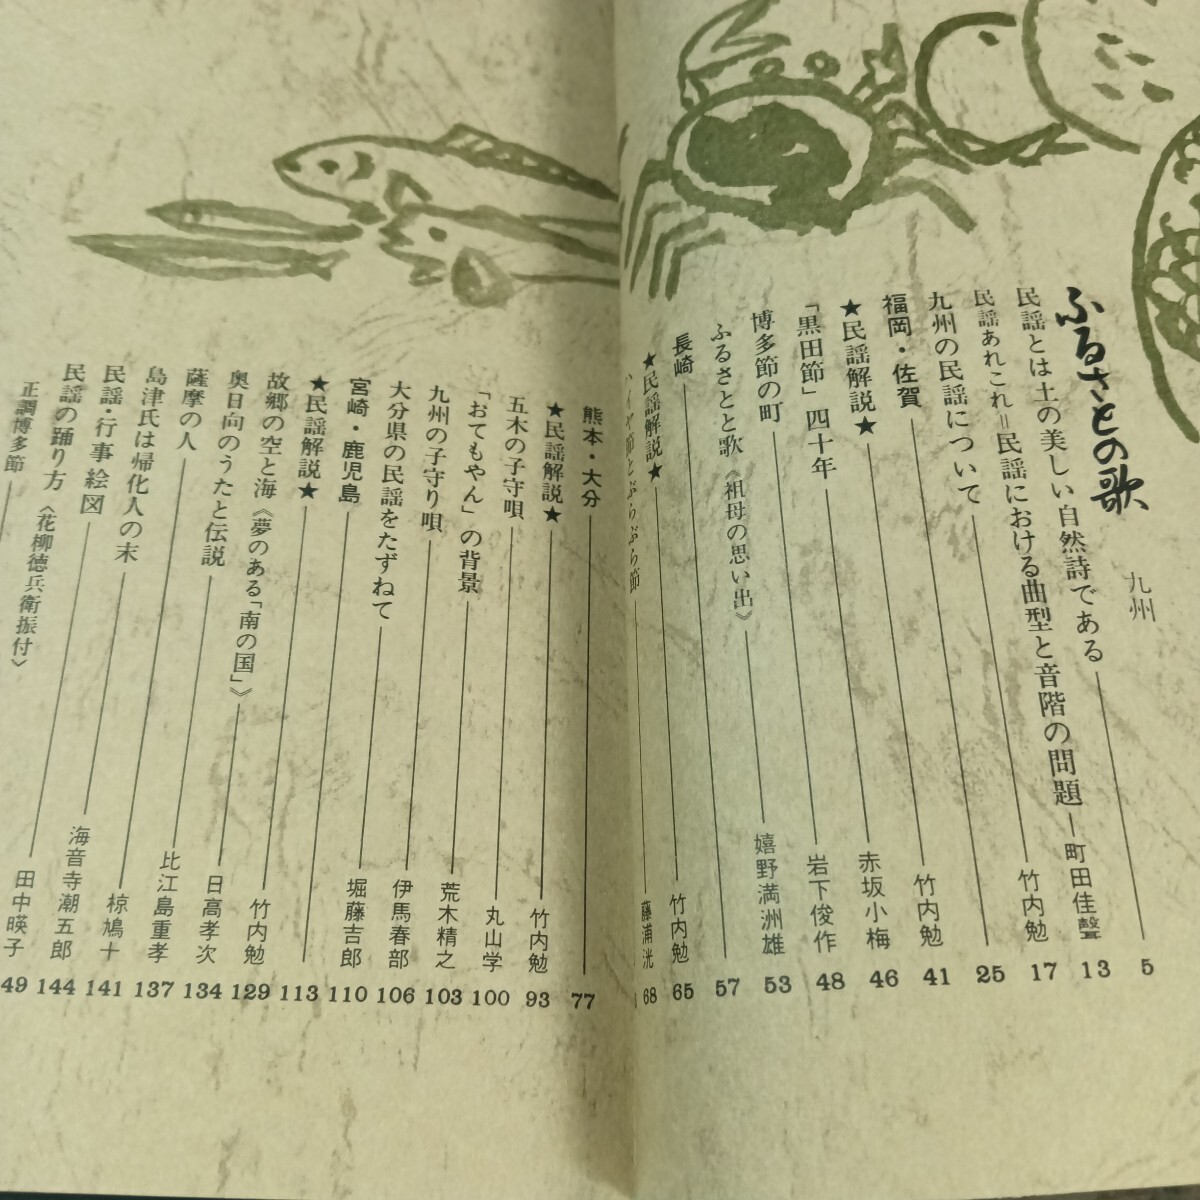 ふるさとの歌 九州
民謡とは土の美しい自然詩である 5
民謡あれこれ=民謡における曲型と音階の問題 町田佳聲 13
九州の民謡について 竹内勉 17
福岡・佐賀 25
★民謡解説★ 竹内勉 41
「黒田節」四十年 赤坂小梅 46
博多節の町 岩下俊作 48
ふるさとと歌《祖母の思い出》 嬉野満洲雄 53
長崎 57
★民謡解説★ 竹内勉 65
ハイヤ節とぶらぶら節 藤浦洸 68
熊本・大分 77
★民謡解説★ 竹内勉 93
五木の子守唄 丸山学 100
「おてもやん」の背景 荒木精之 103
九州の子守り唄 伊馬春部 106
大分県の民謡をたずねて 堀藤吉郎 110
宮崎・鹿児島 113
★民謡解説★ 竹内勉 129
故郷の空と海《夢のある「南の国」》 日高孝次 134
奥日向のうたと伝説 比江島重孝 137
薩摩の人 椋鳩十 141
島津氏は帰化人の末 海音寺潮五郎 144
民謡・行事 絵図 田中暎子 49
民謡の踊り方〈花柳徳兵衛振付〉
正調博多節